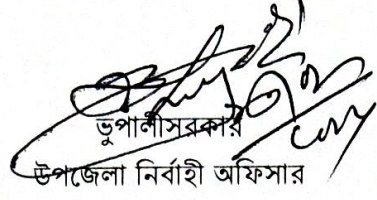 ভুপালীসরকার
উপজেলা নির্বাহী অফিসার